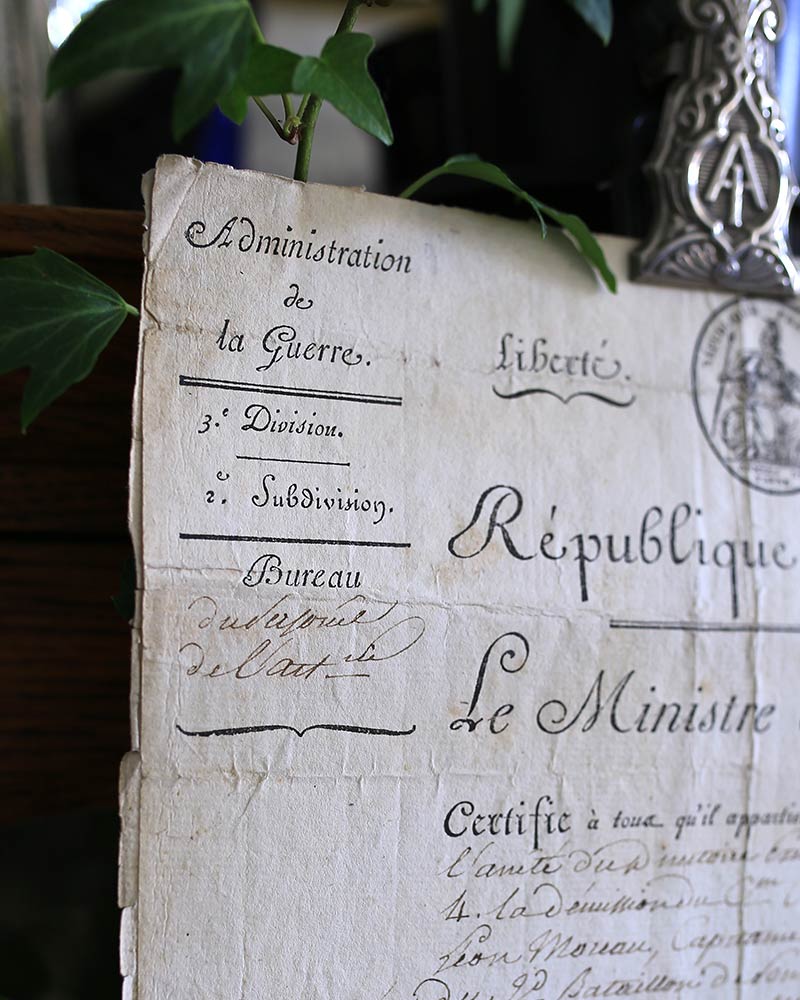 Administration
de
la Guerre.
3.e Division.
2.e Subdivision.
Bureau
du
de l'art.ie
Liberté.
République
Le Ministre
Certifie à tous qu'il appartie
l'arrêté du
4. la démission du C.en
Léon Moreau, Capitaine
Bataillon de